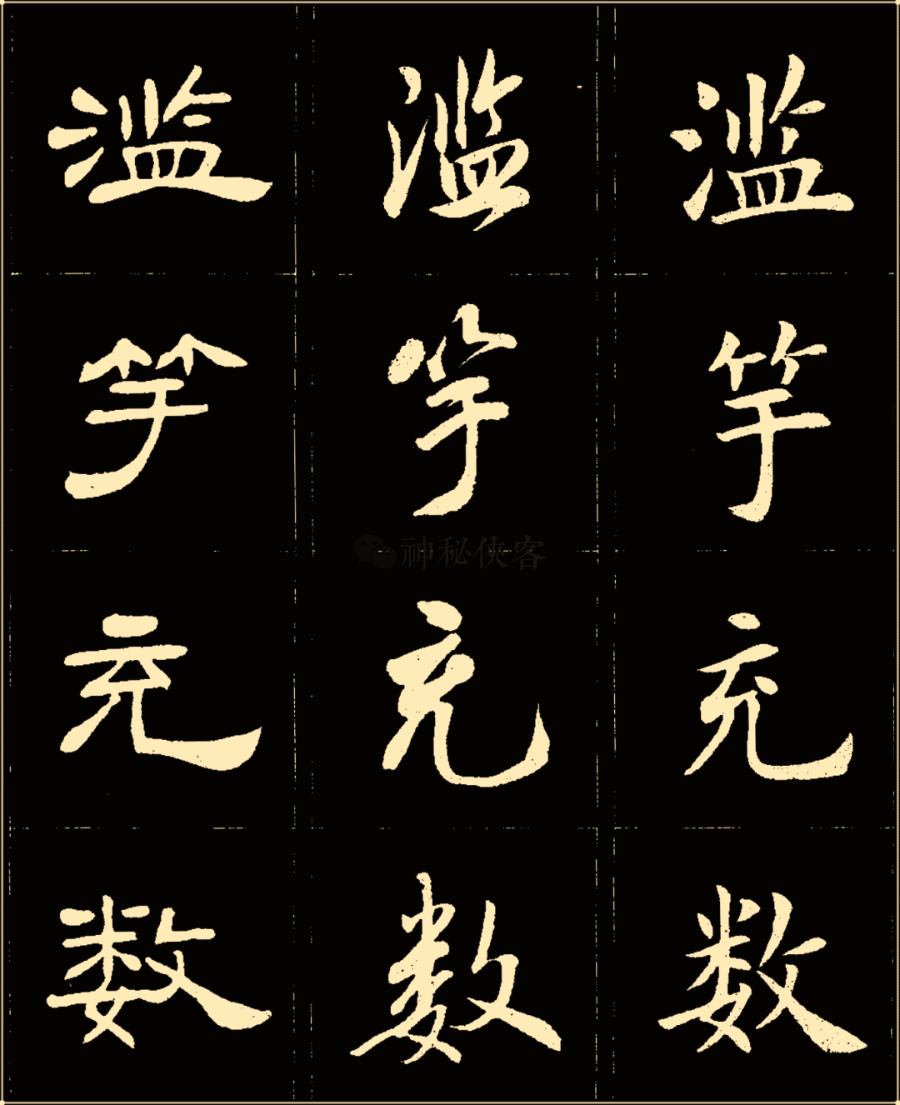 滥 滥 滥
竽 竽 竽
充 充 充
数 数 数
神秘侠客